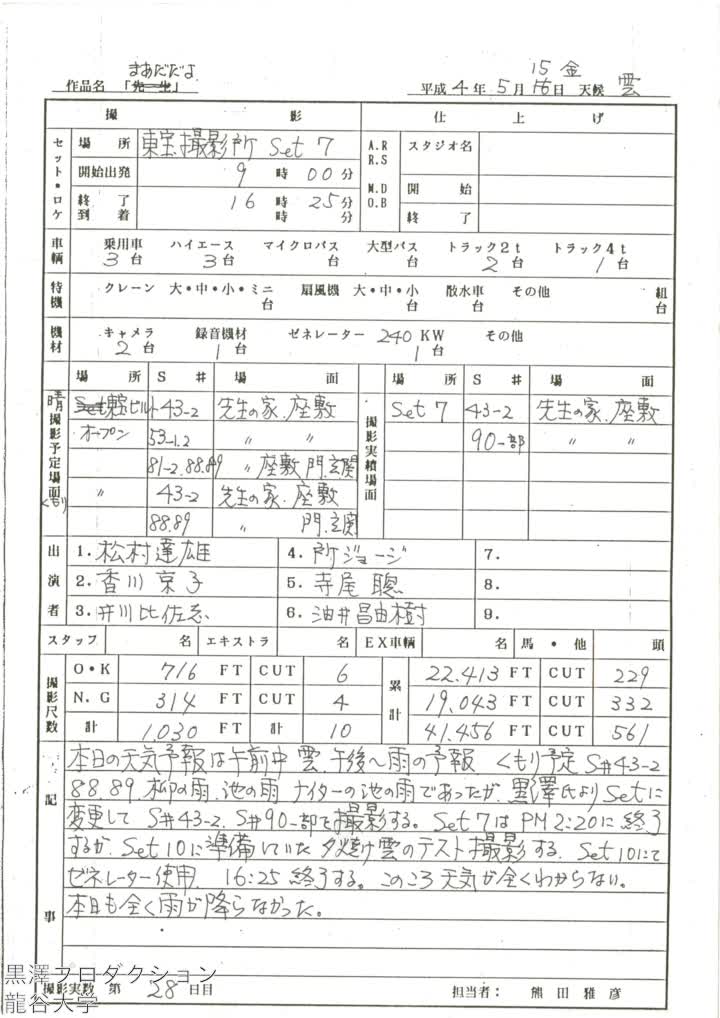 まあだだよ
作品名 「先生」
平成 4 年 5 月 15 16 日 金 天候 雲
撮 影
仕 上 げ
セット・ロケ
場 所 東宝撮影所 Set 7
開始出発 9 時 00 分
終 了 16 時 25 分
到 着 時 分
A.R R.S
M.D O.B
スタジオ名
開 始
終 了
車輌 乗用車 ハイエース マイクロバス 大型バス トラック2t トラック4t
3 台 3 台 台 台 2 台 1 台
特機 クレーン 大・中・小・ミニ 扇風機 大・中・小 散水車 その他 組
台 台 台 台
機材 キャメラ 録音機材 ゼネレーター 240 KW その他
2 台 1 台 1 台
場 所 S # 場 面
場 所 S # 場 面
晴 撮影予定場面 くもり
Set 東宝ビルト 43-2 先生の家、座敷
オープン 53-1.2 〃 〃
81-2.88.89 〃 座敷 門.玄関
〃 43-2 先生の家、座敷
88.89 〃 門.玄関
撮影実績場面
Set 7 43-2 先生の家、座敷
90-部 〃 〃
出演者
1. 松村達雄 4. 所ジョージ 7.
2. 香川京子 5. 寺尾 聰 8.
3. 井川比佐志 6. 油井昌由樹 9.
スタッフ 名 エキストラ 名 EX車輌 名 馬・他 頭
撮影尺数
O・K 716 FT CUT 6 累計 22.413 FT CUT 229
N.G 314 FT CUT 4 19.043 FT CUT 332
計 1,030 FT 計 10 41.456 FT CUT 561
記事
本日の天気予報は午前中 雲、午後〜雨の予報 くもり予定 S#43-2
88.89. 柳の雨、池の雨 ナイターの池の雨であったが、黒澤氏よりSetに
変更して S#43-2. S#90-部を撮影する。Set 7は PM 2:20に終了
するが、Set 10に準備していた夕焼け雲のテスト撮影する。Set 10にて
ゼネレーター使用、16:25 終了する。このころ天気が全くわからない。
本日も全く雨が降らなかった。
撮影実数 第 28 日目
担当者： 熊田雅彦
黒澤プロダクション
龍谷大学